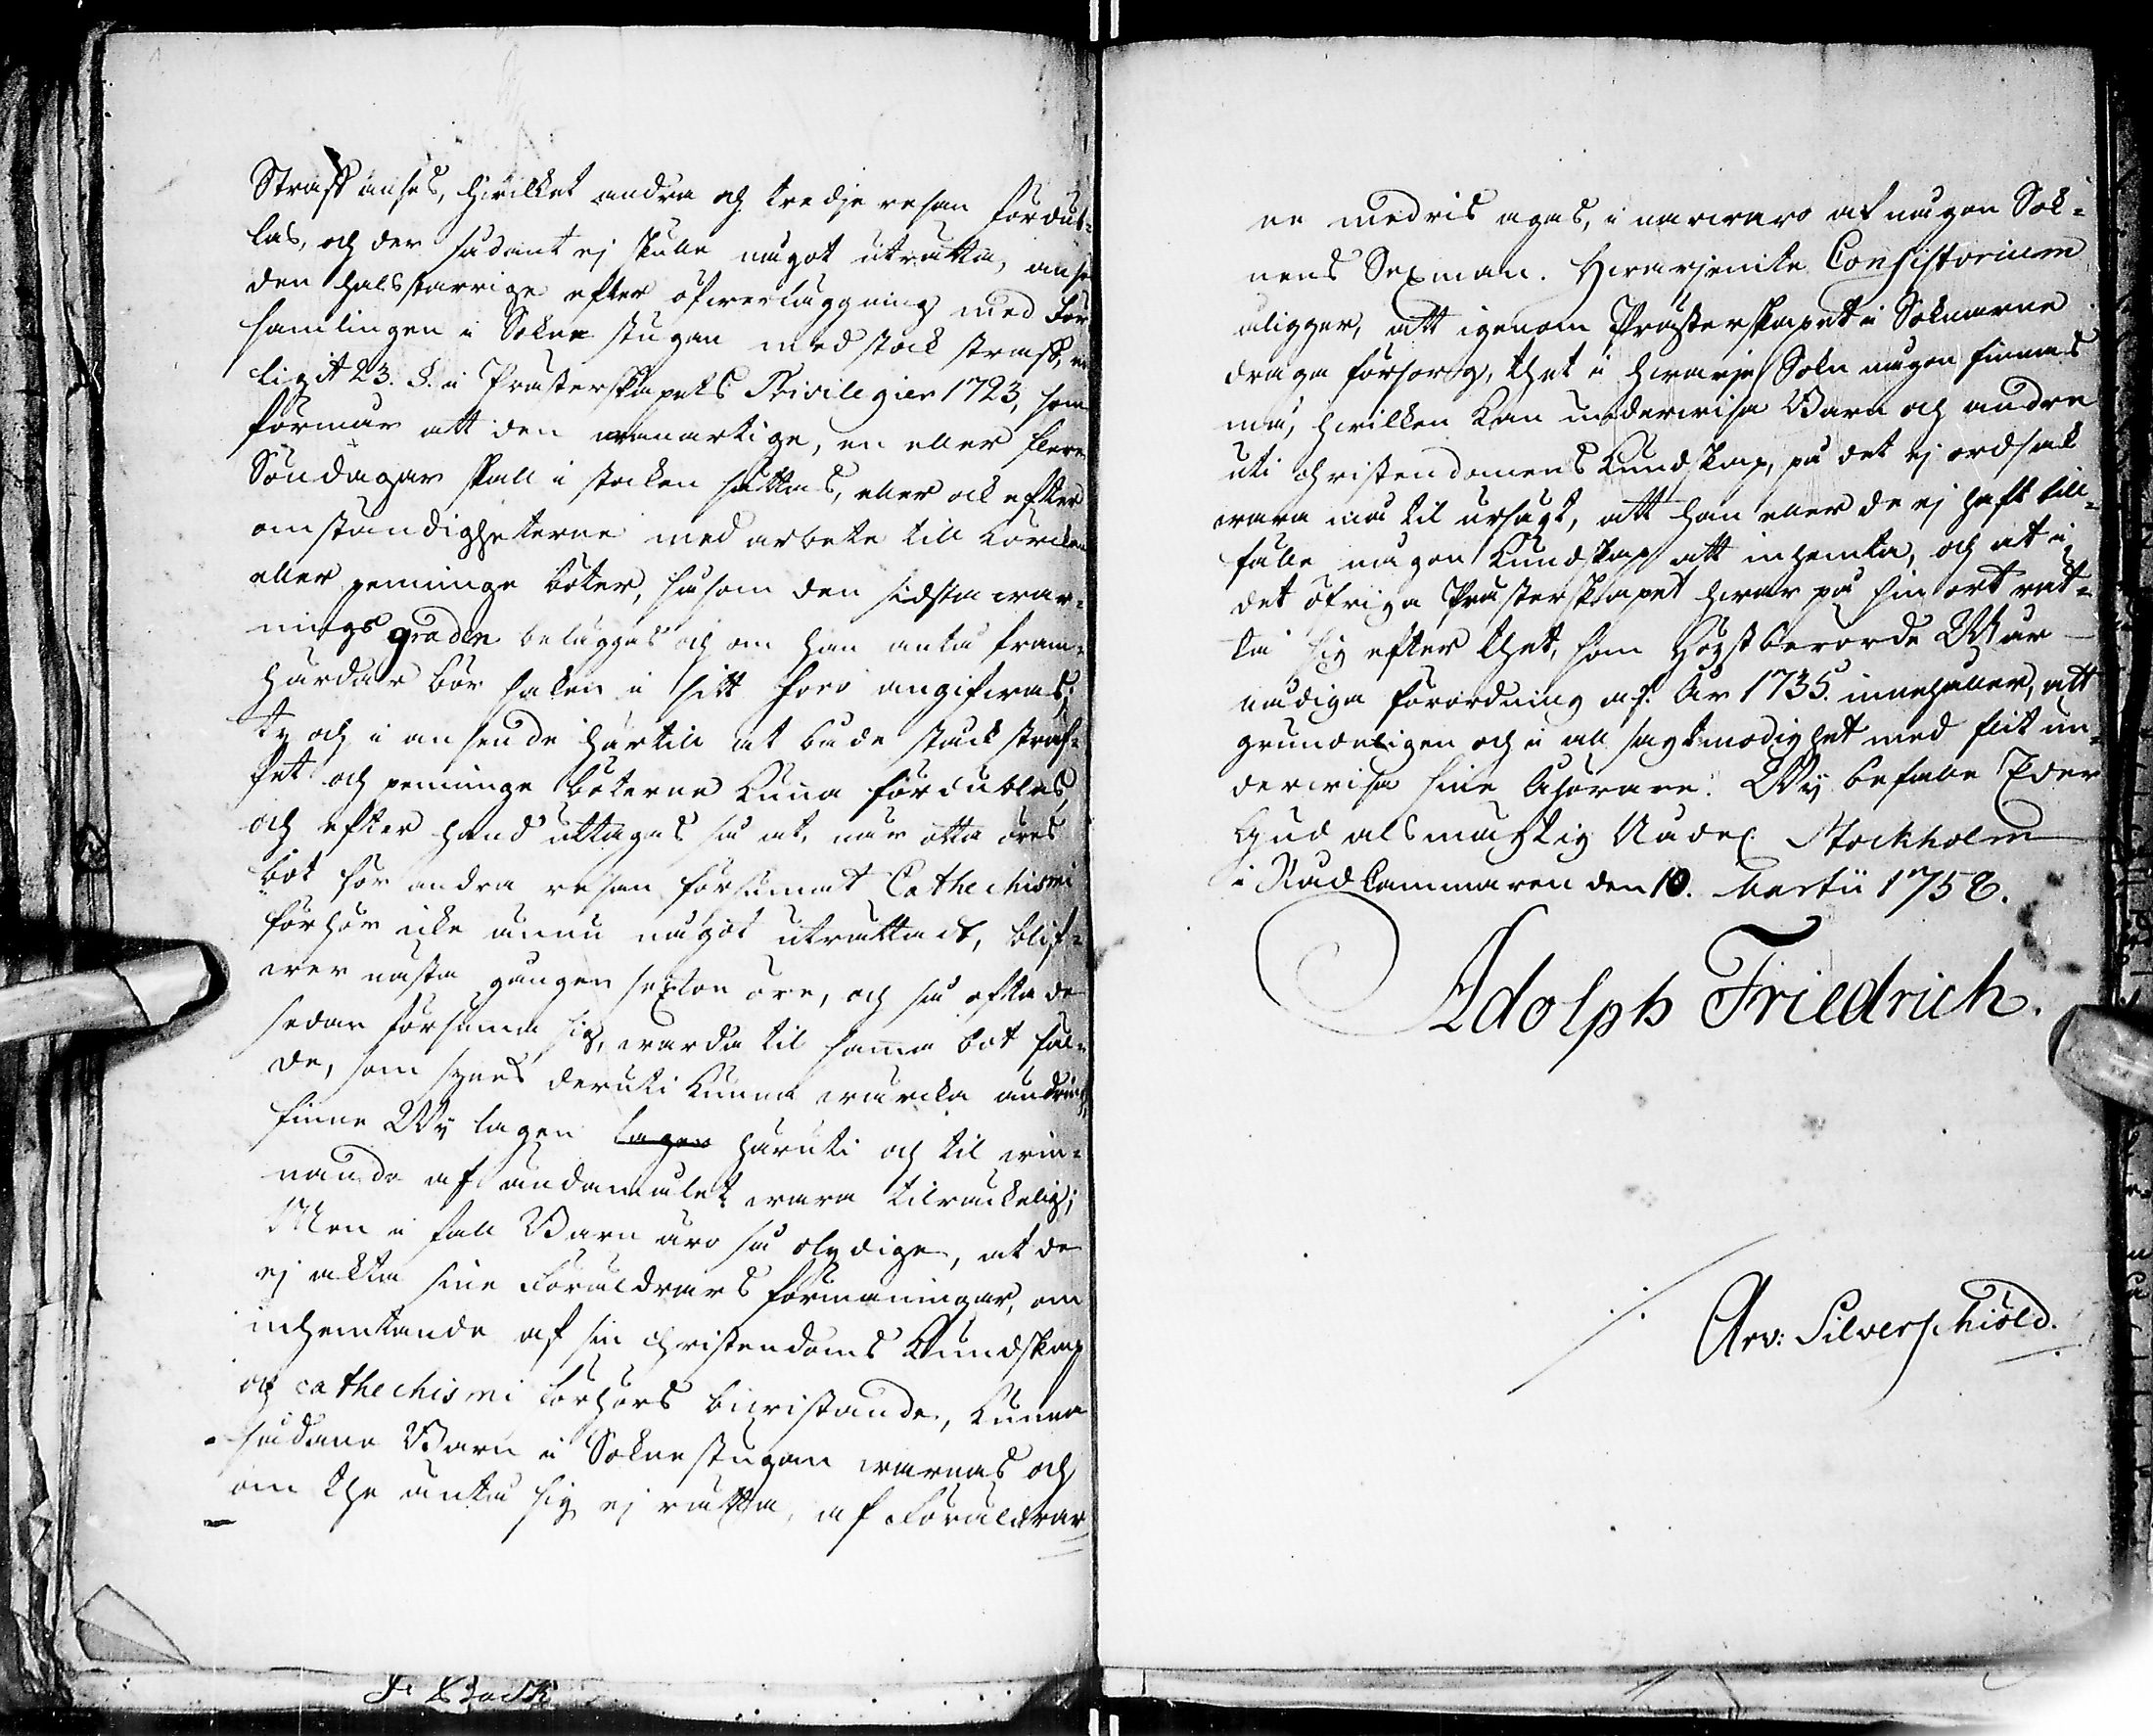 Straff anses, hwilket andra och tredje resan fördub-
las, och der sådant ej skulle något uträtta, anse
den halsstarrige efter öfwerläggning med För
samlingen i Sokne stugan med stock straff, en
ligit 23. §. i Prästerskapets Privilegier 1723, som
förmår att den wanartige, en eller flere
Söndagar skall i stocken sättas, eller ock efter
omständigheterne med arbete till Kyrckan
eller penninge böter, såsom den sidsta war-
nings graden beläggas och om han äntå fram-
härdar bör saken i sitt foro angifwas;
ty och i anseende härtill at både stock straf-
fet och penninge böterne kuna fördublas,
och efter hand uttagas så at, når otta öres
böt för andra resan försumat Cathechismi
förhör icke ännu något uträttadt, blif-
wer nästa gången sexton öre, och så ofta de
sedan försumma sig, warda til samma bot fäl-
de, som synes deruti kunna wärcka ändring,
finne Wy lagen lagen häruti och til win-
nande af ändamålet wara tilräckelig;
Men i fall Barn äro så olydige, at de
ej akta sine Föräldrars förmaningar, om
inhemtande af sin christendoms Kundskap
och cathechismi förhörs biwistande, kunna
sådane Barn i Soknestugan warnas och
om the äntå sig ej rätta, af Föräldrar
ne medris agas, i närwaro af någon Sok-
nens Sexman. Hwarjemte Consistorium
åligger, att igenom Prästerskapet i Soknarne
draga försorg, thet i hwarje Sokn någon finnas
må, hwilken kan underwisa Barn och andre
uti christendomens Kundskap, på det ej ordsak
wara må til ursägt, att han eller de ej haft till-
fälle någon Kundskap att inhemta, och at i
det öfriga Prästerskapet hwar på sin ort rät-
ta sig efter thet, som Högstberörde Wår
nådiga förordning af. År 1735. innehåller, att
grundeligen och i all sagtmodighet med flit un-
derwisa sine Åhörare. Wy befalle Eder
Gud alsmägtig Nådel. Stockholm
i Råd Cammaren den 10. Martii 1758.
Adolph Friedrich.
Arv: Silverschiöld.